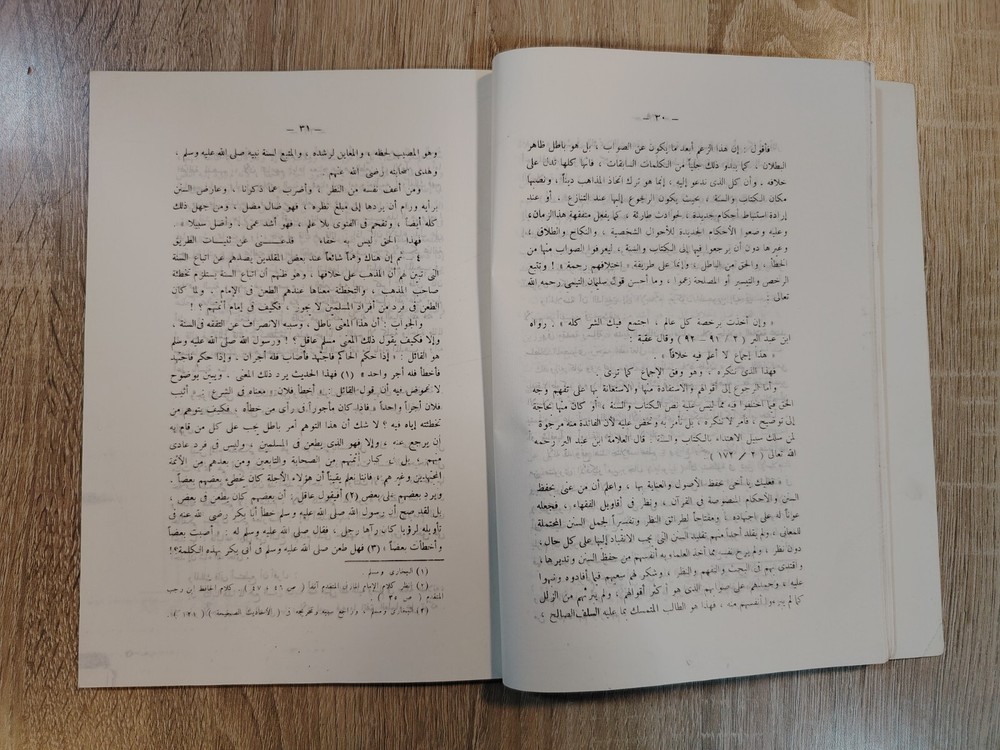 — ٣٠ —
فأقول : إن هذا الزعم أبعد ما يكون عن الصواب ، بل هو باطل ظاهر
البطلان ، كما يبدو ذلك جلياً من الكلمات السابقات ، فانها كلها تدل على
خلافه . وأن كل الذى ندعو إليه ، إنما هو ترك اتخاذ المذاهب ديناً ، ونصبها
مكان الكتاب والسنة ، بحيث يكون الرجوع إليها عند التنازع . أو عند
إرادة استنباط أحكام جديدة ، لحوادث طارئة ، كما يفعل متفقهة هذا الزمان ،
وعليه وضعوا الأحكام الجديدة للأحوال الشخصية ، والنكاح والطلاق ،
وغيرها دون أن يرجعوا فيها إلى الكتاب والسنة ، ليعرفوا الصواب منها من
الخطأ ، والحق من الباطل ، وإنما على طريقة « اختلافهم رحمة » ! وتتبع
الرخص والتيسير أو المصلحة زعموا ، وما أحسن قول سليمان التيمى رحمه الله
تعالى :
« وإن أخذت برخصة كل عالم ، اجتمع فيك الشر كله » . رواه
ابن عبد البر ( ٢ / ٩١ – ٩٢ ) وقال عقبة :
« هذا إجماع لا أعلم فيه خلافاً » .
فهذا الذى ننكره ، وهو وفق الإجماع كما ترى .
وأما الرجوع إلى أقوالهم والاستفادة منها والاستعانة بها على تفهم وجه
الحق فيما اختلفوا فيه مما ليس عليه نص الكتاب والسنة ، أو كان منها بحاجة
إلى توضيح ، فأمر لا ننكره ، بل نأمر به ونحض عليه لأن الفائدة منه مرجوة
لمن سلك سبيل الاهتداء بالكتاب والسنة . قال العلامة ابن عبد البر رحمه
الله تعالى ( ٢ / ١٧٢ )
« فعليك يا أخى بحفظ الأصول والعناية بها ، واعلم أن من عنى بحفظ
السنن والأحكام المنصوصة فى القرآن ، ونظر فى أقاويل الفقهاء ، فجعله
عوناً له على اجتهاده ، ومفتاحاً لطرائق النظر وتفسيراً لجمل السنن المحتملة
للمعانى ، ولم يقلد أحداً منهم تقليد السنن التى يجب الانقياد إليها على كل حال
دون نظر ، ولم يرح نفسه مما أخذ العلماء به أنفسهم من حفظ السنن وتدبرها ،
واقتدى بهم فى البحث والتفهم والنظر ، وشكر لهم سعيهم فيما أفادوه ونبهوا
عليه ، وحمدهم على صوابهم الذى هو أكثر أقوالهم ، ولم يبرئهم من الزلل
كما لم يبرءوا أنفسهم منه ، فهذا هو الطالب المتمسك بما عليه السلف الصالح ،
— ٣١ —
وهو المصيب لحظه ، والمعاين لرشده ، والمتبع لسنة نبيه صلى الله عليه وسلم ،
وهدى صحابته رضى الله عنهم .
ومن أعف نفسه من النظر ، وأضرب عما ذكرنا ، وعارض السنن
برأيه ورام أن يردها إلى مبلغ نظره ، فهو ضال مضل ، ومن جهل ذلك
كله أيضاً ، وتقحم فى الفتوى بلا علم ، فهو أشد عمى ، وأضل سبيلا »
فهذا الحق ليس به خفاء فدعنى عن ثنيات الطريق
٤ – ثم إن هناك وهماً شائعاً عند بعض المقلدين يصدهم عن اتباع السنة
التى تبين لهم أن المذهب على خلافها ، وهو ظنهم أن اتباع السنة يستلزم تخطئة
صاحب المذهب ، والتخطئة معناها عندهم الطعن فى الإمام ، ولما كان
الطعن فى فرد من أفراد المسلمين لا يجوز ، فكيف فى إمام أئمتهم ؟ !
والجواب : أن هذا المعنى باطل ، وسببه الانصراف عن التفقه فى السنة ،
وإلا فكيف يقول ذلك المعنى مسلم عاقل ؟ ! ورسول الله صلى الله عليه وسلم
هو القائل : « إذا حكم الحاكم فاجتهد فأصاب فله أجران . وإذا حكم فاجتهد
فأخطأ فله أجر واحد » (١) فهذا الحديث يرد ذلك المعنى . ويبين بوضوح
لا غموض فيه أن قول القائل : « أخطأ فلان » معناه فى الشرع : « أثيب
فلان أجراً واحداً » فاذا كان مأجوراً فى رأى من خطأه . فكيف يتوهم من
تخطئته إياه فيه ؟ لا شك أن هذا التوهم أمر باطل يجب على كل من قام به
إن يرجع عنه ، وإلا فهو الذى يطعن فى المسلمين ، وليس فى فرد عادى
منهم ، بل فى كبار أئمتهم من الصحابة والتابعين ومن بعدهم من الأئمة
المجتهدين وغيرهم ، فاننا نعلم يقيناً أن هؤلاء الأجلة كان يخطىء بعضهم بعضاً .
ويرد بعضهم على بعض (٢) أفيقول عاقل : أن بعضهم كان يطعن فى بعض ،
بل لقد صح أن رسول الله صلى الله عليه وسلم خطأ أبا بكر رضى الله عنه فى
تأويله لرؤيا كان رآها رجل ، فقال صلى الله عليه وسلم له : « أصبت بعضاً
وأخطأت بعضاً » (٣) فهل طعن صلى الله عليه وسلم فى أبى بكر بهذه الكلمة؟!
(١) البخارى ومسلم
(٢) انظر كلام الإمام المتقدم آنفاً ( ص ٤٦ ، ٤٧ ) . كلام الحافظ ابن رجب
المتقدم ( ص ٣٥ )
(٣) البخارى ومسلم . وراجع سببه وتخريجه فى « الأحاديث الصحيحة » ( ١٢١ )